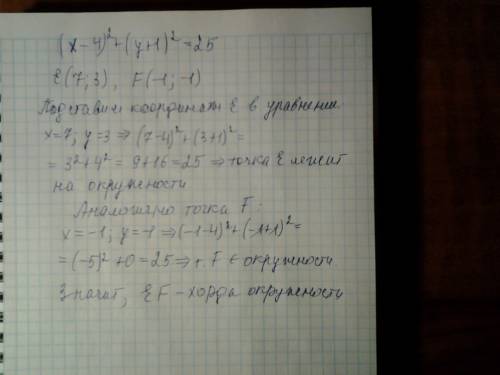 (x-4)²+(y+1)²=25
E(7;3), F(-1;-1)
Подставим координаты E в уравнение
x=7; y=3 ⇒ (7-4)²+(3+1)²=
= 3²+4² = 9+16=25 ⇒ точка E лежит
на окружности
Аналогично точка F:
x=-1; y=-1 ⇒ (-1-4)²+(-1+1)²=
=(-5)²+0=25 ⇒ т. F ∈ окружности
Значит, EF - хорда окружности